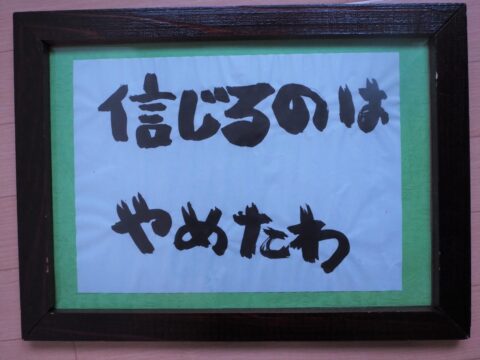 信じるのは
やめたわ